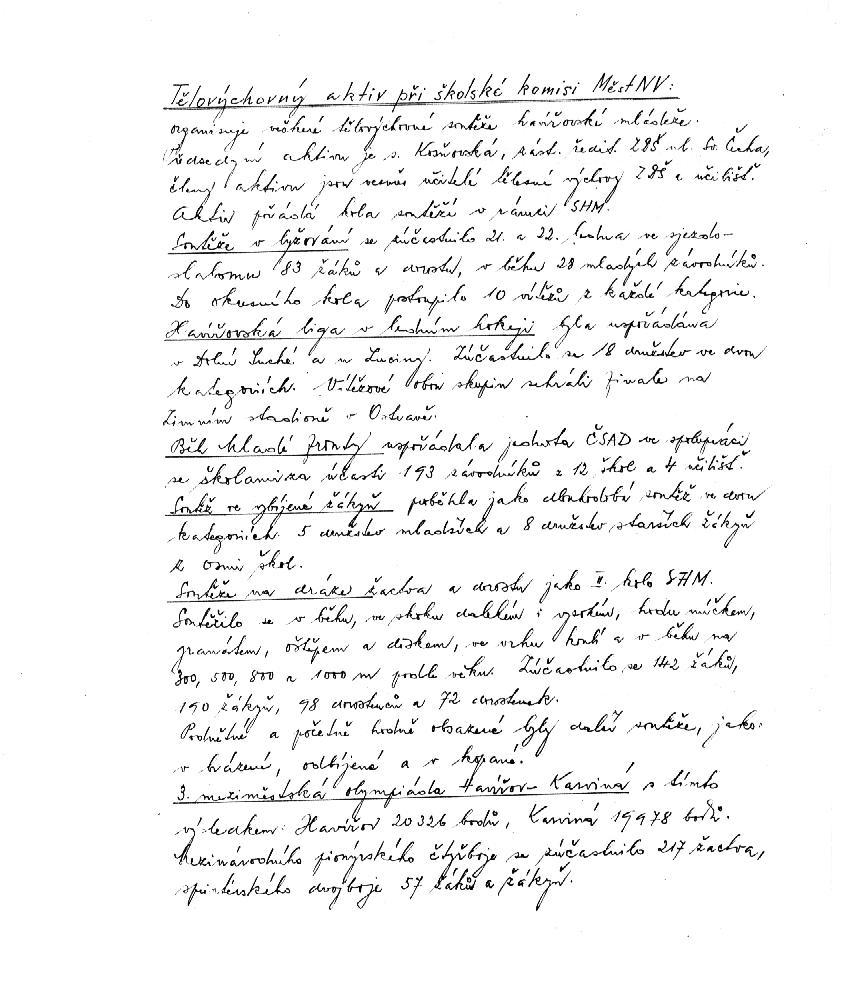 Tělovýchovný aktiv při školské komisi MěstNV:
organisuje veškeré tělovýchovné soutěže havířovské mládeže.
Předsedkyní aktivu je s. Kosňovská, zást. ředit. ZDŠ ul. Sv. Čecha,
členy aktivu jsou vesměs učitelé tělesné výchovy ZDŠ a učilišť.
Aktiv pořádá kola soutěží v rámci SHM.
Soutěže v lyžování se zúčastnilo 21. a 22. ledna ve sjezdo-
slalomu 83 žáků a dorostu, v běhu 28 mladých závodníků.
Do okresního kola postoupilo 10 vítězů z každé kategorie.
Havířovská liga v ledním hokeji byla uspořádána
v Dolní Suché a na Luciny. Zúčastnilo se 18 družstev ve dvou
kategoriích. Vítězové obou skupin sehráli finale na
Zimním stadioně v Ostravě.
Běh Mladé fronty uspořádala jednota ČSAD ve spolupráci
se školami za účasti 193 závodníků z 12 škol a 4 učilišť.
Soutěž ve vybíjené žákyň proběhla jako dlouhodobá soutěž ve dvou
kategoriích. 5 družstev mladších a 8 družstev starších žákyň
z osmi škol.
Soutěže na dráze žactva a dorostu jako II. kolo SHM.
Soutěžilo se v běhu, ve skoku dalekém i vysokém, hodu míčkem,
granátem, oštěpem a diskem, ve vrhu koulí a v běhu na
300, 500, 800 a 1000 m podle věku. Zúčastnilo se 142 žáků,
190 žákyň, 98 dorostenců a 72 dorostenek.
Podnětné a početně hodně obsazené byly další soutěže, jako:
v házené, odbíjené a v kopané.
3. meziměstská olympiáda Havířov - Karviná s tímto
výsledkem: Havířov 20326 bodů, Karviná 19978 bodů.
Mezinárodního pionýrského čtyřboje se zúčastnilo 217 žactva,
sprintérského dvojboje 57 žáků a žákyň.